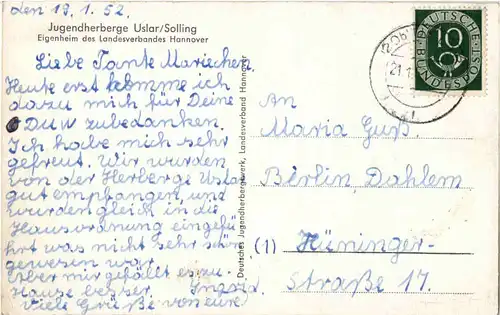 den 19.1.52.
Jugendherberge Uslar/Solling
Eigenheim des Landesverbandes Hannover
Liebe Tante Mariechen.
Heute erst komme ich
dazu mich für Deine
zubedanken.
Ich habe mich sehr
gefreut. Wir wurden
von der Herberge Uslar
gut empfangen, und
wurden gleich in die
Hausordnung eingefü
hrt was nicht sehr schön
gewesen war.
Aber mir gefällt es zu
Hause besser.
Viele Grüße von eure
Deutsches Jugendherbergswerk, Landesverband Hannover
DEUTSCHE BUNDESPOST
10
21.1.
An
Maria Guß.
Berlin, Dahlem
(1) Hüninger-
Straße 17.